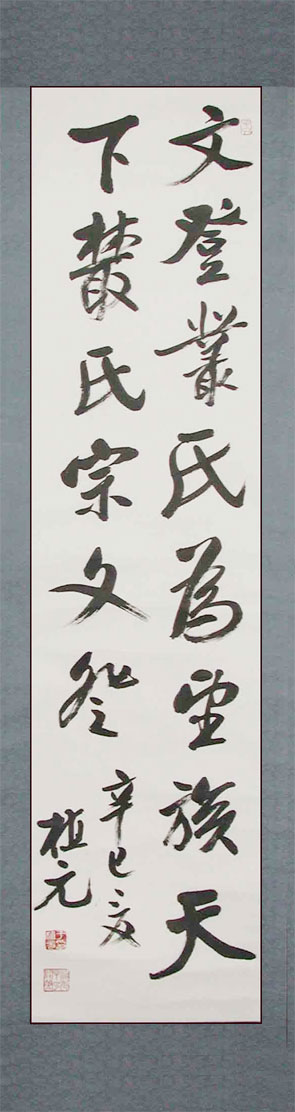 文登叢氏為望族天
下叢氏宗文登
辛巳夏
植元